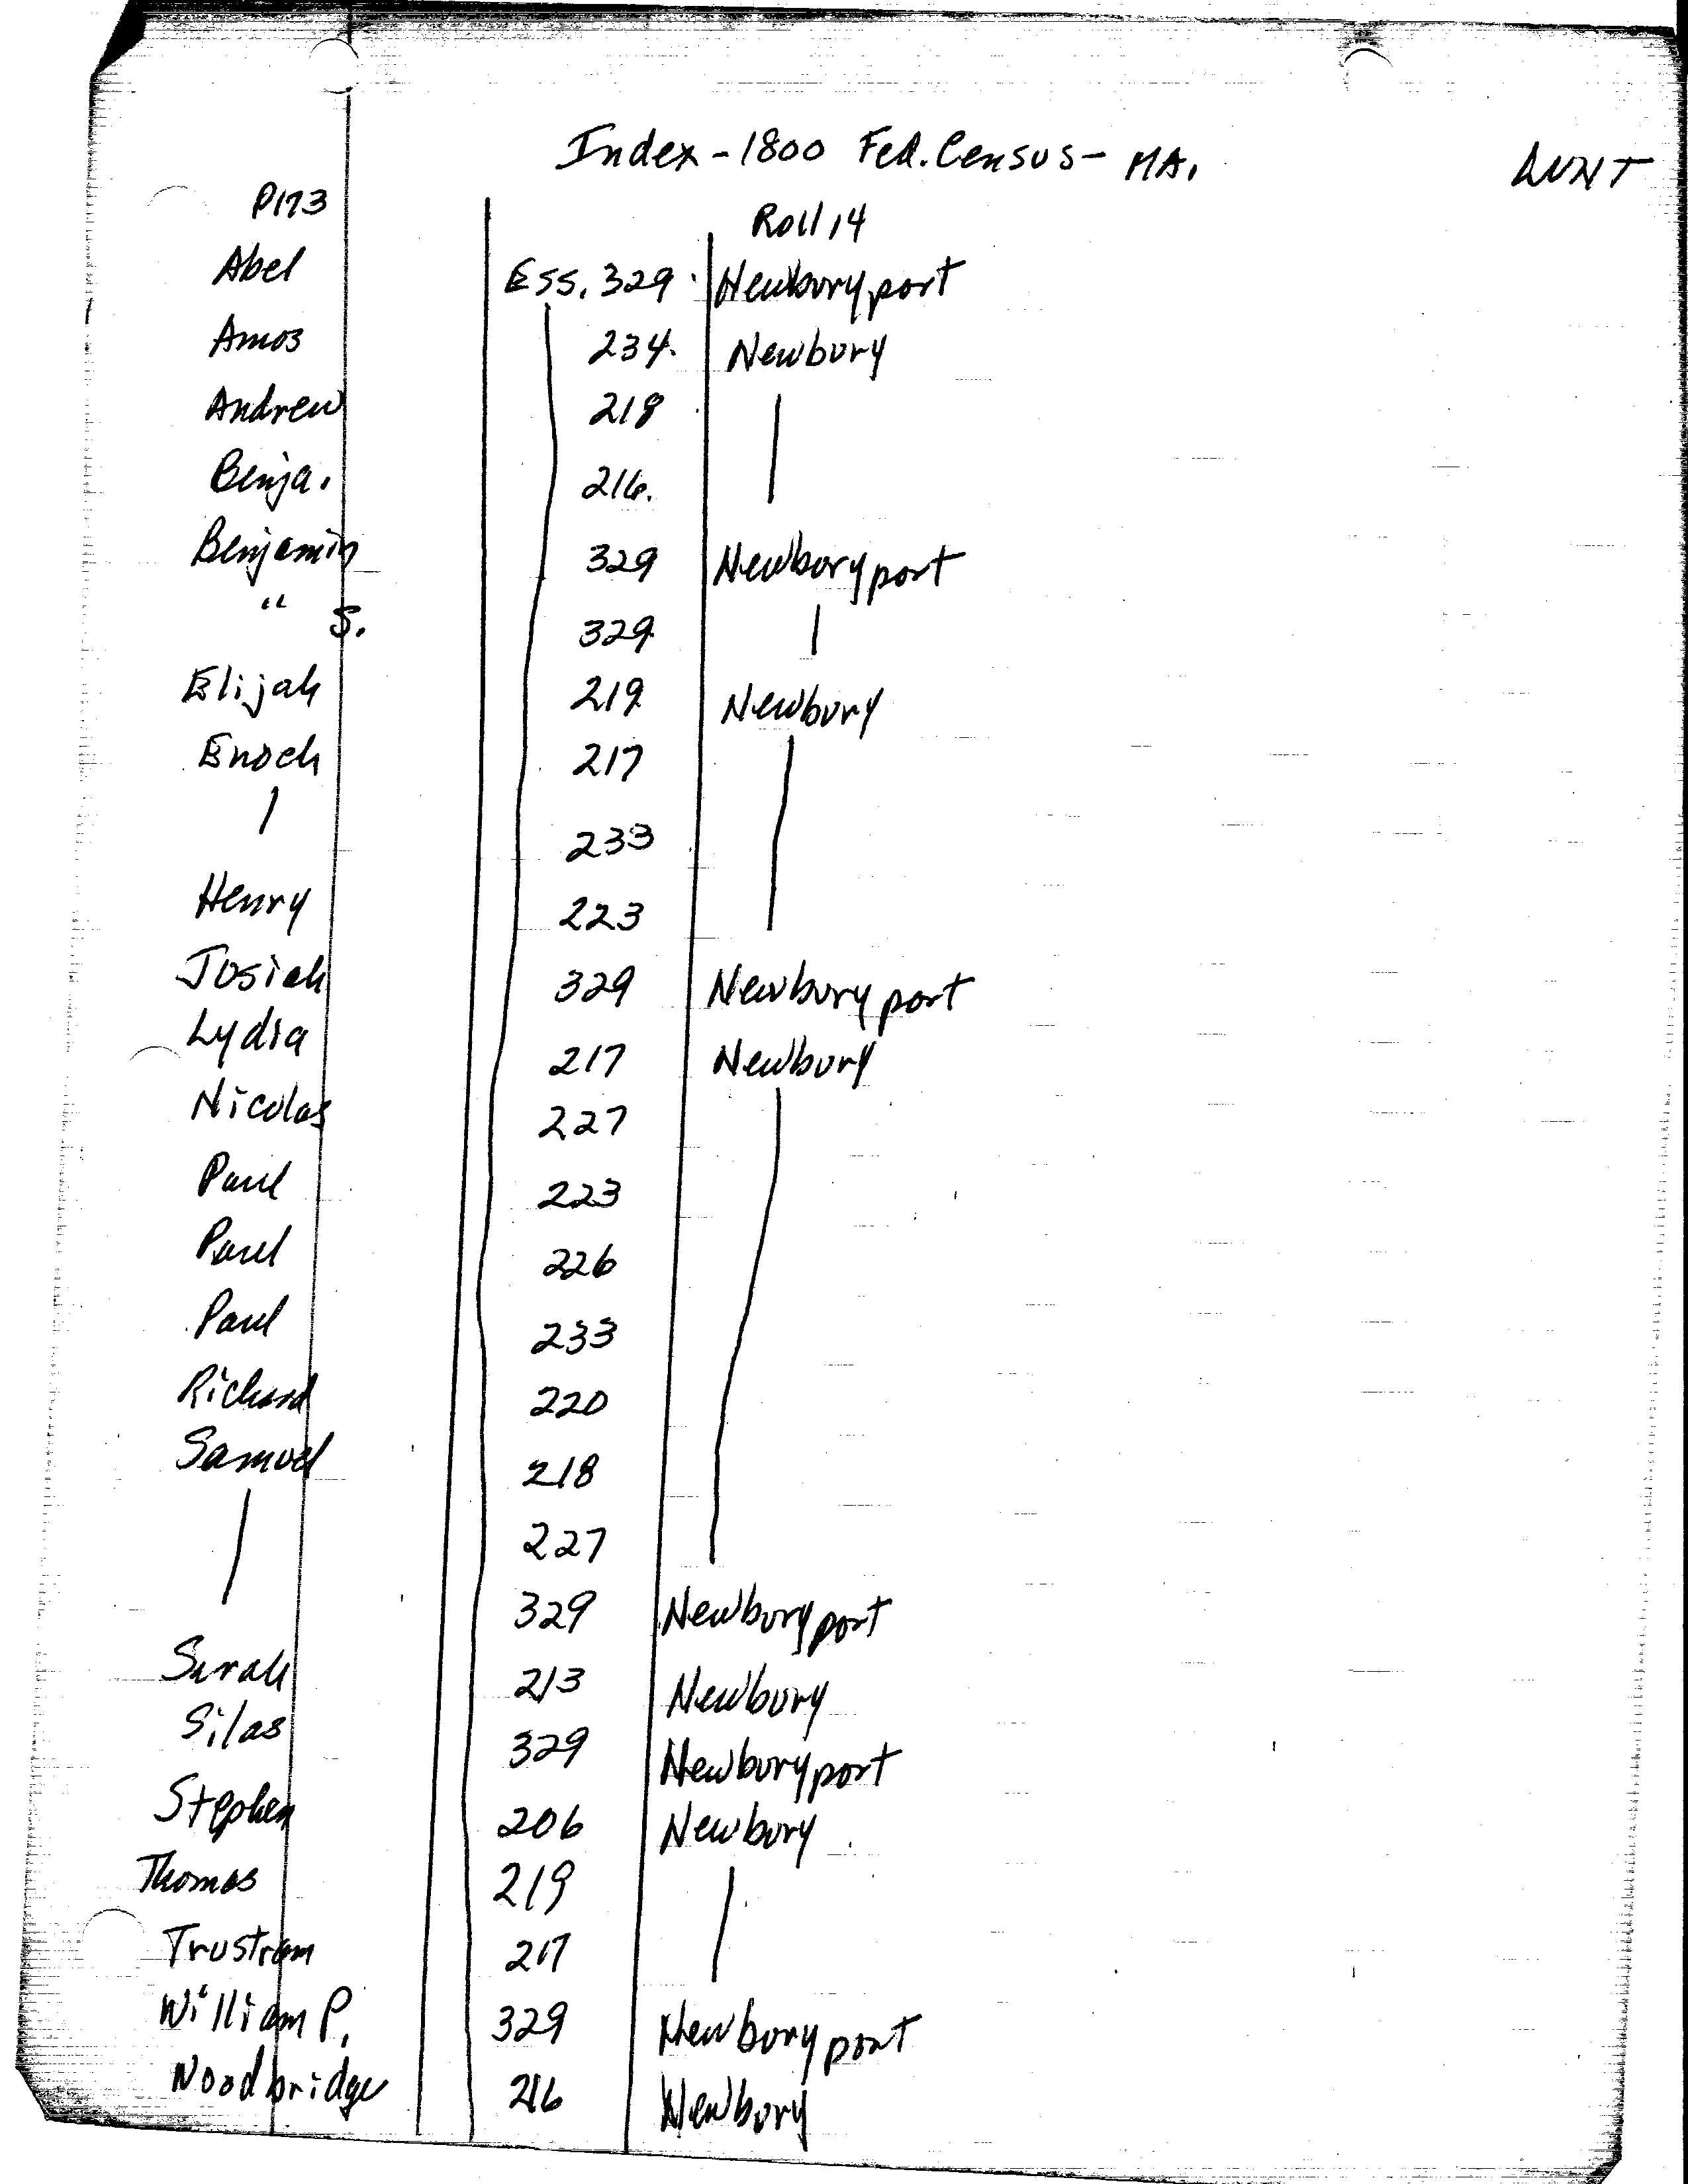 Index - 1800 Fed. Census - MA.
LUNT
P173
Roll 14
Abel Ess. 329 Newburyport
Amos 234. Newbury
Andrew 218
Benja. 216.
Benjamin 329 Newburyport
" S. 329
Elijah 219 Newbury
Enoch 217
233
Henry 223
Josiah 329 Newburyport
Lydia 217 Newbury
Nicolas 227
Paul 223
Paul 226
Paul 233
Richard 220
Samuel 218
227
329 Newburyport
Sarah 213 Newbury
Silas 329 Newburyport
Stephen 206 Newbury
Thomas 219
Trustram 217
William P. 329 Newburyport
Woodbridge 216 Newbury